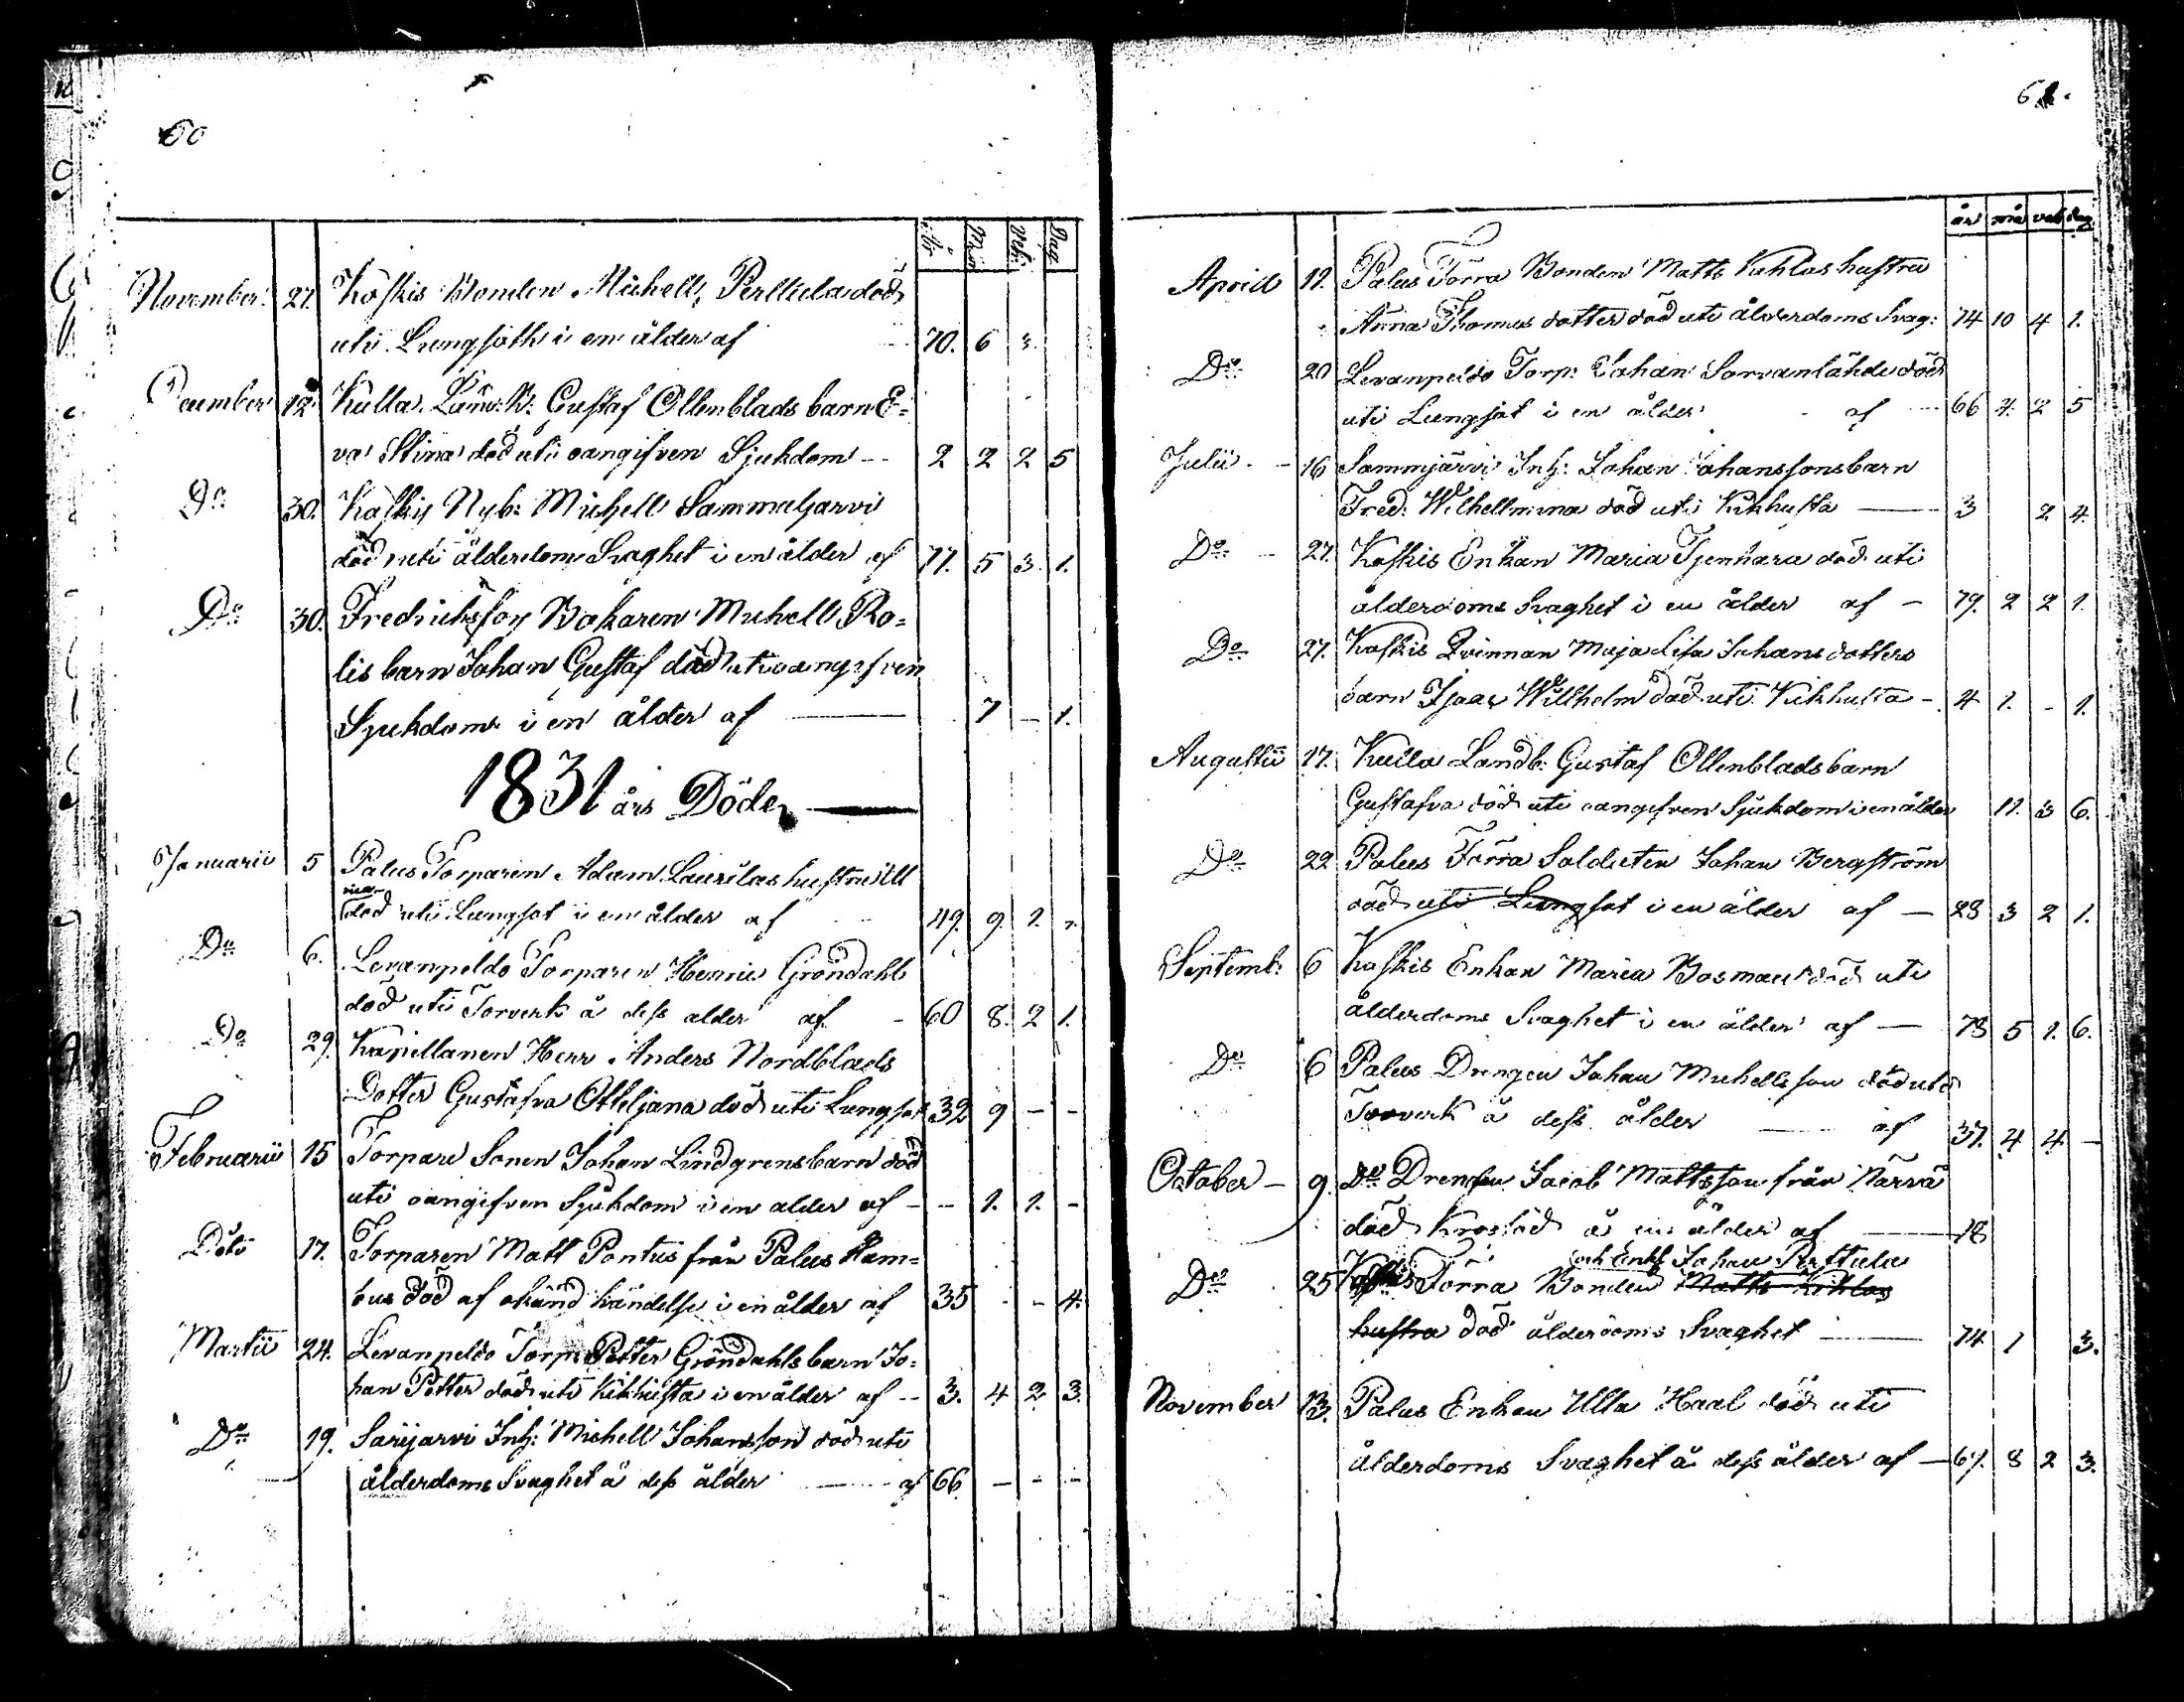 60
År Mån Vek: Dag
November 27. Koskis Bonden Michell Perttula död
uti Lungsoth i en ålder af 70. 6 3.
December 12. Kulla Landb: Gustaf Ollenblads barn E=
va Stina död uti oangifven Sjukdom -- 2 2 2 5
Do 30. Koskis Nyb: Michell Sammaljarvi
död uti ålderdoms Svaghet i en ålder af 77. 5 3. 1.
Do 30. Fredriksfors Bokaren Michell Ro=
lis barn Johan Gustaf död uti oangifven
Sjukdom i en ålder af — 7 - 1.
1831 års Döde —
Januarii 5 Palus Torparen Adam Laurilas hustru Ull
död uti Lungsot i en ålder af 49. 9. 1.
Do 6. Levanpeldo Torparen Henric Gröndahl
död uti Torverk å dess alder af - 60 8. 2 1.
Do 29. Kapellanen Herr Anders Nordblads
Dotter Gustafva Ottiljana död uti Lungsot 32 9 - -
Februarii 15 Torpare Sonen Johan Lindgrens barn död
uti oangifven Sjukdom i en alder af - - 1. 1. -
Dito 17. Torparen Matt Pontus från Palus Ham=
bus död af okänd händelse i en ålder af 35 - - 4.
Martii 24. Levanpeldo Torp: Petter Gröndahls barn Jo=
han Petter död uti Kikhosta i en ålder af -- 3. 4 2 3.
Do 19. Särijarvi Inh: Michell Johansson död uti
ålderdoms Svaghet å dess ålder — af 66 - - -
61.
år mån vek dag
Aprill 12. Palus Torra Bonden Matts Kohlas hustru
Anna Thomas dotter död uti ålderdoms Svag: 74 10 4 1.
Do 20 Levanpeldo Torp: Johan Sorvanlähde död
uti Lungsot i en ålder af 66 4. 2 5
Julii - 16 Sammjärvi Inh: Johan Johanssons barn
Fred: Wilhellmina död uti Kikhosta — 3 2 4.
Do - 27. Koskis Enkan Maria Tjenhara död uti
ålderdoms Svaghet i en ålder af - 79. 2 2 1.
Do 27. Koskis Qvinnan Maja Lisa Johans dotters
barn Isaac Willhelm död uti Kikhosta - 4 1. - 1.
Augustii 17. Kulla Landb: Gustaf Ollenblads barn
Gustafva död uti oangifven Sjukdom i en ålder 11. 3 6.
Do 22 Palus Torra Soldaten Johan Bergström
död uti Lungsot i en ålder af — 28 3 2 1.
Septemb: 6 Koskis Enkan Maria Bosman död uti
ålderdoms Svaghet i en ålder af — 78 5 1. 6.
Do 6 Palus Drengen Johan Michellsson död uti
Torverk å dess ålder — af 37. 4 4 -
October - 9. Do Drengen Jacob Mattsson från Närrä
död å en ålder af — 18
och Enkl: Johan Perttula
Do 25 Koskis Torra Bonden Matts Kohlas
hustra död ålderdoms Svaghet — 74 1 3.
November 13. Palus Enkan Ulla Haal död uti
ålderdoms Svaghet å dess ålder af — 67. 8 2 3.